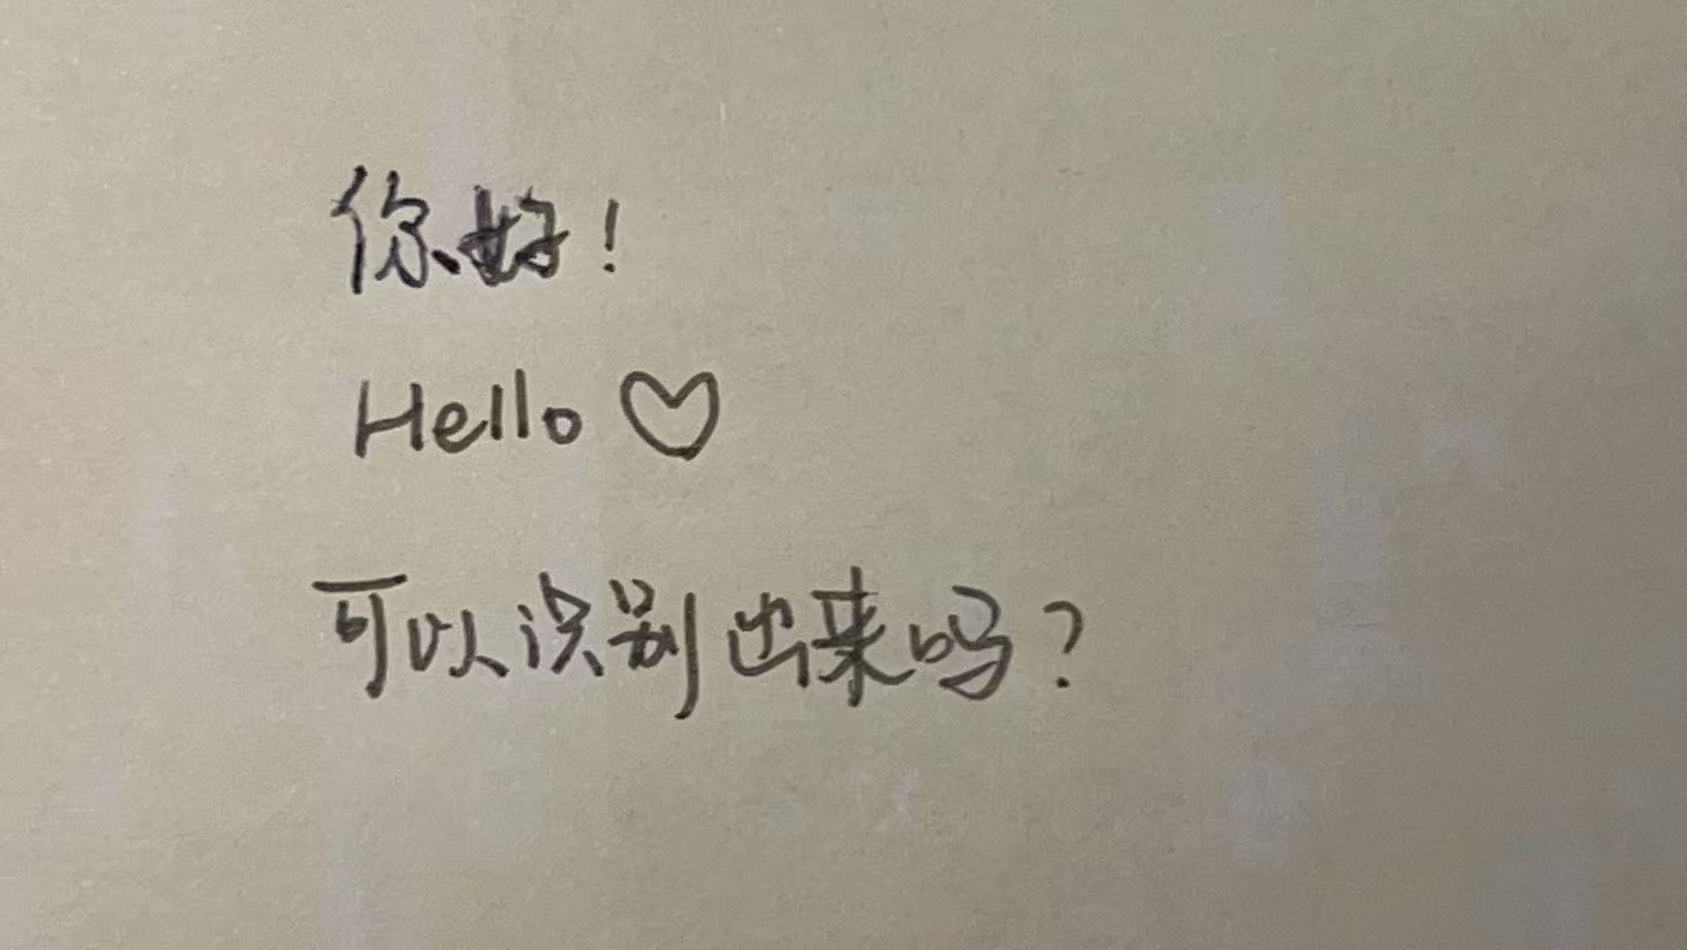 你好！
Hello ♡
可以识别出来吗？